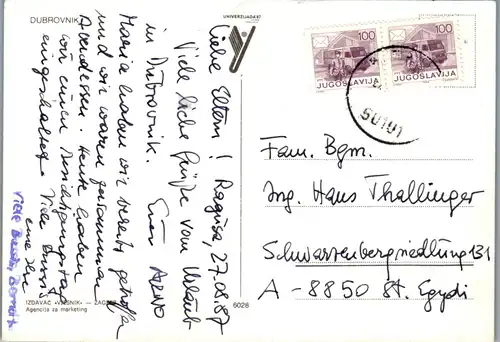 DUBROVNIK
UNIVERZIJADE 87
Liebe Eltern! Ragusa, 27.08.87
Viele liebe Grüße vom Urlaub
in Dubrovnik. Euer
Maria haben wir bereits getroffen
und wir waren zusammen
Abendessen. Heute haben
wir einen Besichtigungstag
eingeschaltet. Viele Bussis
eure
Viele
IZDAVAČ «VJESNIK» — ZAGREB
Agencija za marketing
6028
100
JUGOSLAVIJA
100
JUGOSLAVIJA
50101
Fam. Bgm.
Ing. Hans Thallinger
Schwarzenbergsiedlung 131
A - 8850 St. Egydi